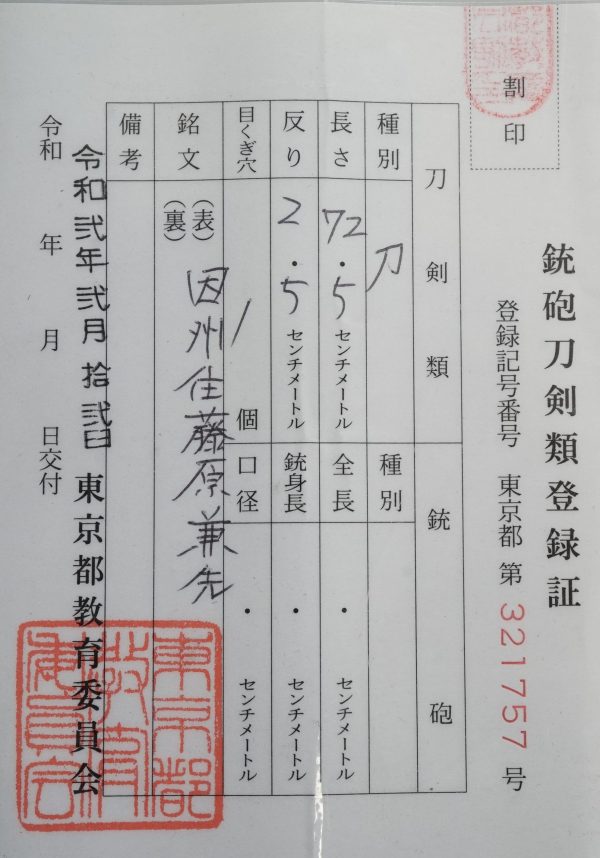 銃砲刀剣類登録証
割印
登録記号番号 東京都 第 321757 号
刀剣類
銃砲
種別 刀
種別
長さ 72.5センチメートル
全長 ・ センチメートル
反り 2.5センチメートル
銃身長 ・ センチメートル
目くぎ穴 1 個
口径 ・ センチメートル
銘文 (表) 因州住藤原兼先
(裏)
備考
令和 年 月 日交付
令和弐年弐月拾弐日 東京都教育委員会
東京都
教育
委員会